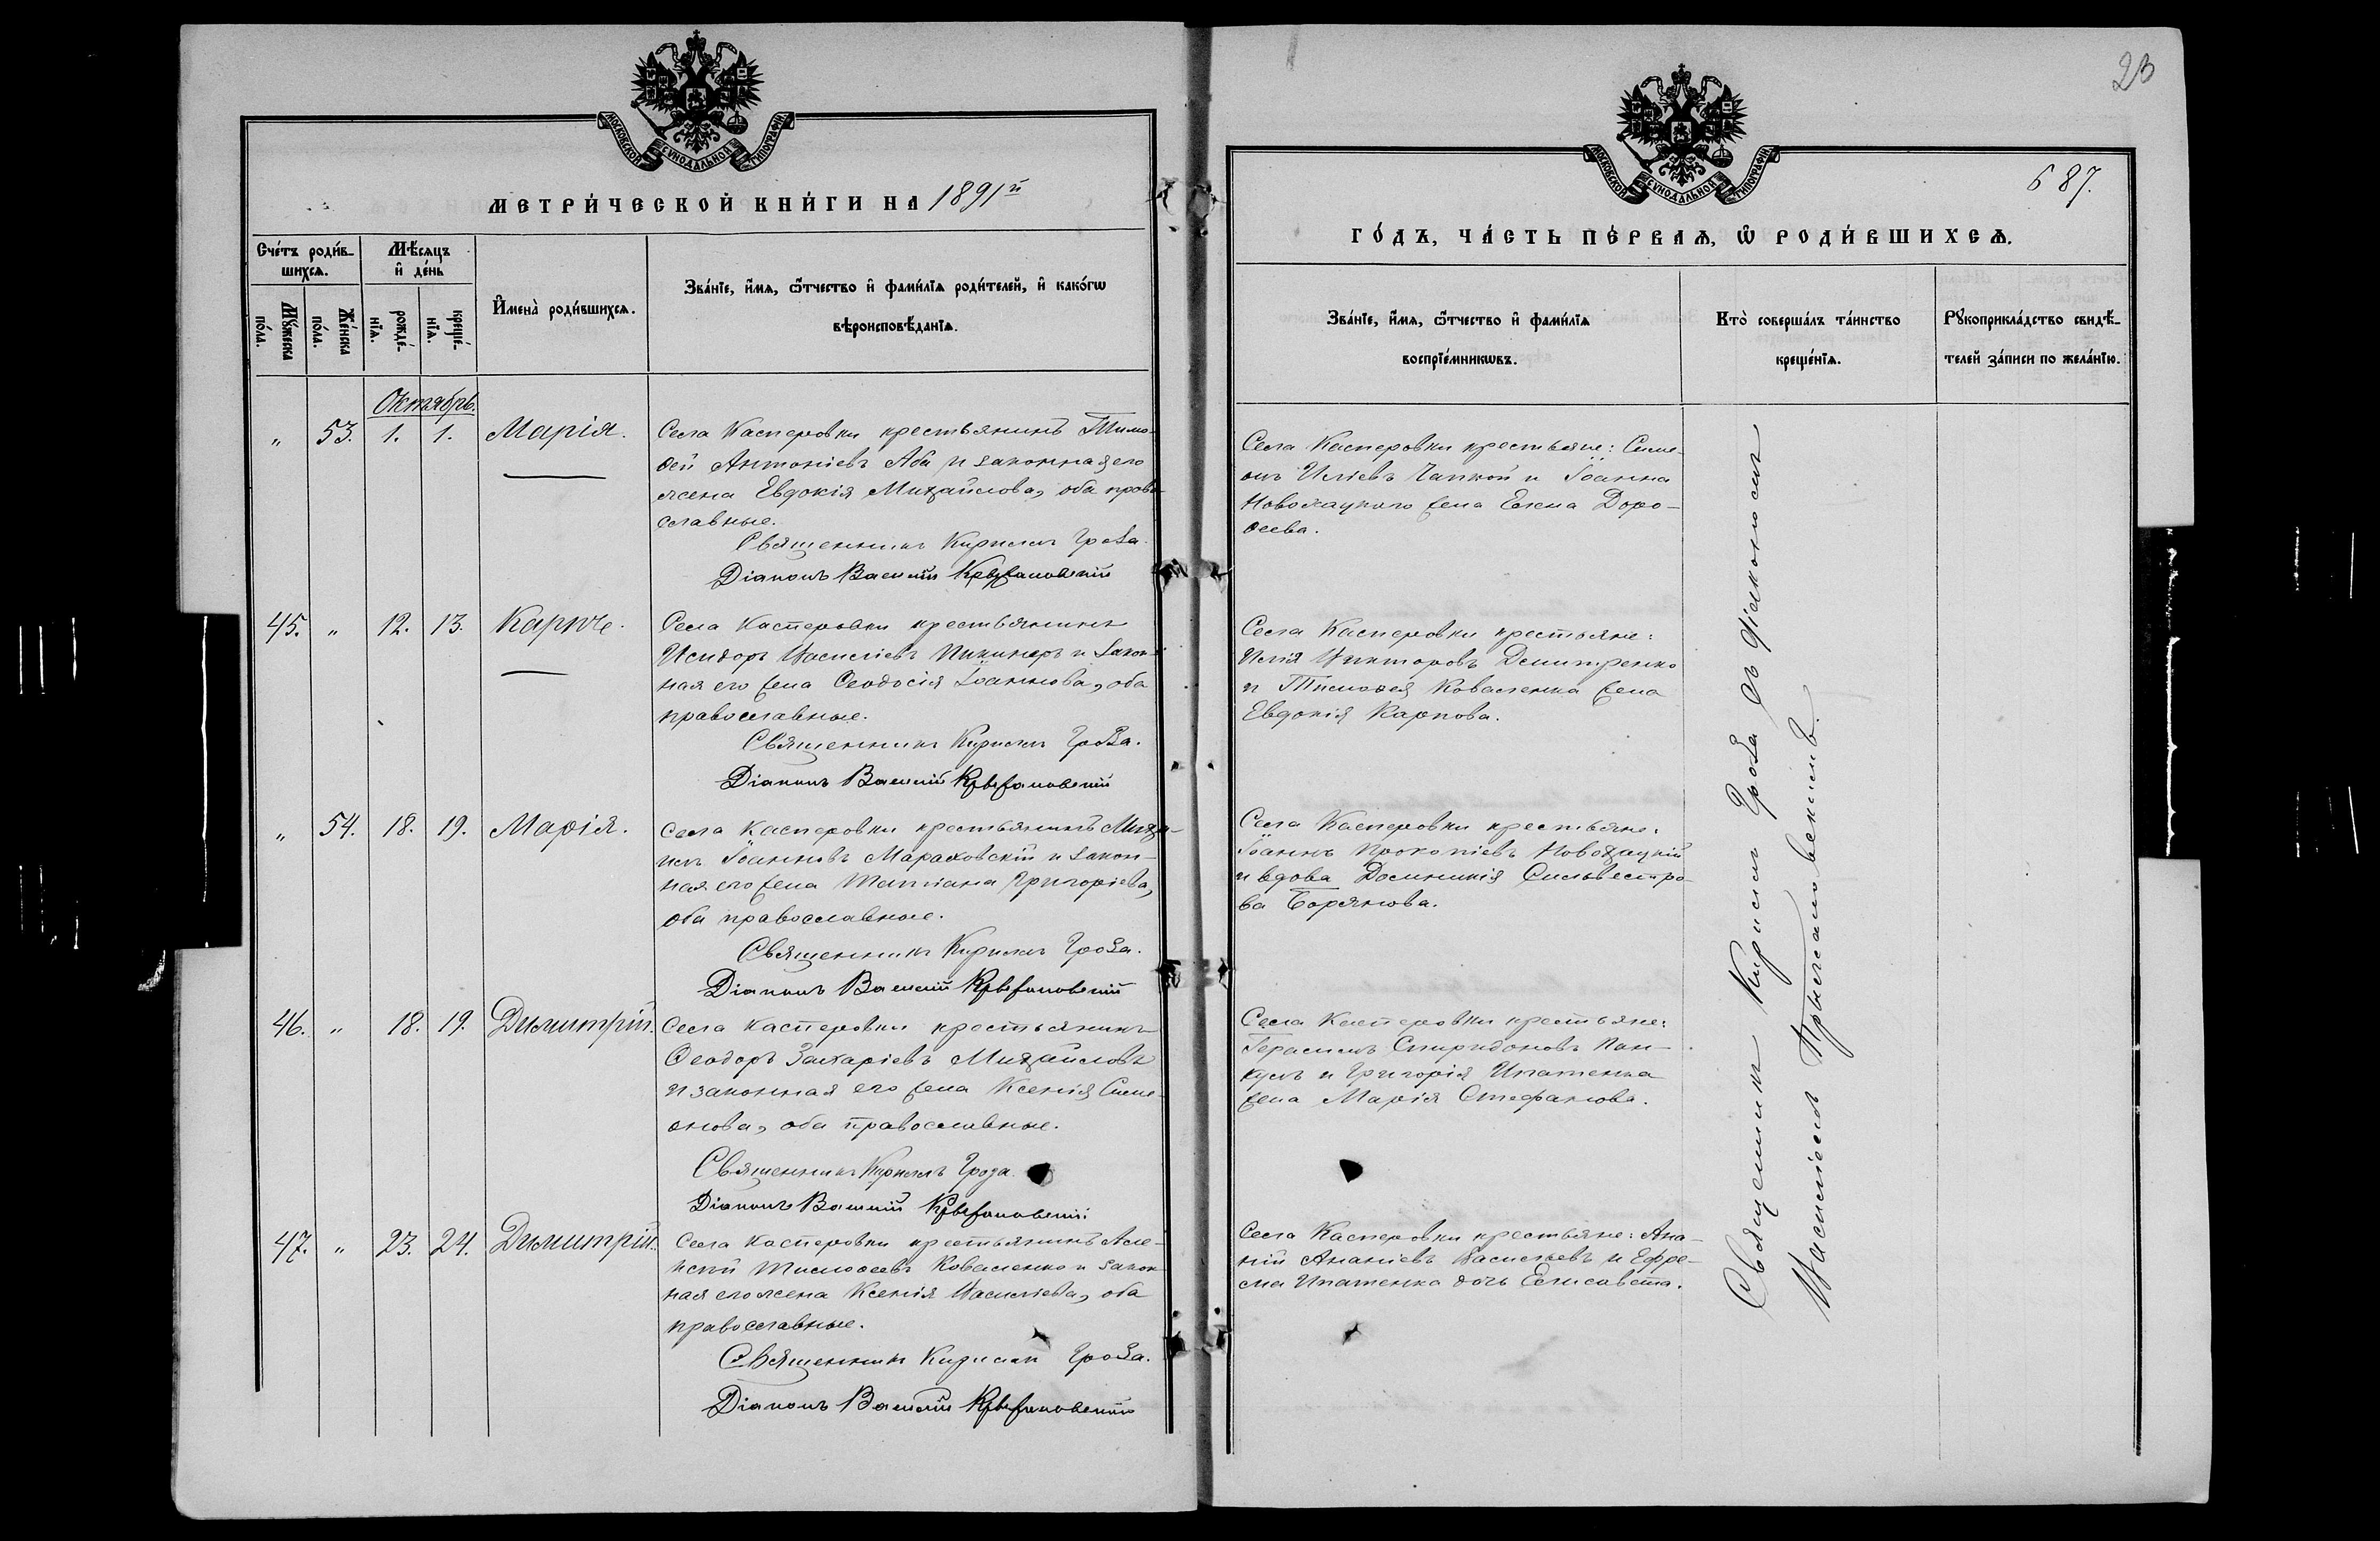 23
МОСКОВСКОЙ СУНОДАЛЬНОЙ ТИПОГРАФІИ
МОСКОВСКОЙ СУНОДАЛЬНОЙ ТИПОГРАФІИ
МЕТРИ́ЧЕСКОЙ КНИ́ГИ НА 1891й
687.
ГО́ДЪ, ЧА́СТЬ ПЕ́РВАѦ, Ѡ РОДИ́ВШИХСѦ.
Сче́тъ роди́в-
шихсѧ.
Мꙋ́жеска по́ла.
Же́нска по́ла.
Мѣ́сѧцъ
и҆ де́нь
рожде́-
нїѧ.
креще́-
нїѧ.
И҆мена̀ роди́вшихсѧ.
Зва́нїе, и҆́мѧ, ѻ҆́тчество и҆ фами́лїѧ роди́телей, и҆ како́гѡ
вѣроисповѣ́данїѧ.
Зва́нїе, и҆́мѧ, ѻ҆́тчество и҆ фами́лїѧ
воспрїе́мникѡвъ.
Кто̀ соверша́лъ та́инство
креще́нїѧ.
Рꙋкоприкла́дство свидѣ́-
телей за́писи по жела́нїю.
Октябрь.
„ 53. 1. 1. Марія.
Села Касперовки крестьянинъ Тимо-
ѳей Антоніевъ Аба и законная его
жена Евдокія Михайлова, оба право-
славные.
Священникъ Кириллъ Гроза.
Діаконъ Василій
Села Касперовки крестьяне: Симе-
онъ Иліевъ и Іоанна
Новохацкого жена Елена Доро-
ѳеева.
45. „ 12. 13. Карпъ.
Села Касперовки крестьянинъ
Исидоръ Василіевъ Пикинеръ и закон-
ная его жена Ѳеодосія Іоаннова, оба
православные.
Священникъ Кириллъ Гроза.
Діаконъ Василій
Села Касперовки крестьяне:
Илія Викторовъ Демитренко
и Тимоѳея Коваленка жена
Евдокія Карпова.
„ 54. 18. 19. Марія.
Села Касперовки крестьянинъ Миха-
илъ Іоанновъ Мараховскій и закон-
ная его жена Татіана Григоріева,
оба православные.
Священникъ Кириллъ Гроза.
Діаконъ Василій
Села Касперовки крестьяне:
Іоаннъ Прокопіевъ Новохацкій
и вдова Домникія Сильвестро-
ва Борянова.
46. „ 18. 19. Димитрій.
Села Касперовки крестьянинъ
Ѳеодоръ Захаріевъ Михайловъ
и законная его жена Ксенія Симе-
онова, оба православные.
Священникъ Кириллъ Гроза.
Діаконъ Василій
Села Касперовки крестьяне:
Герасимъ Спиридоновъ Пан-
кулъ и Григорія Ипатенка
жена Марія Стефанова.
47. „ 23. 24. Димитрій.
Села Касперовки крестьянинъ Але-
ксѣй Тимоѳеевъ Коваленко и закон-
ная его жена Ксенія Василіева, оба
православные.
Священникъ Кириллъ Гроза.
Діаконъ Василій
Села Касперовки крестьяне: Ана-
ній Ананіевъ Васильевъ и Ефре-
ма Ипатенка дочь Елисавета.
Священникъ Кириллъ Гроза съ діакономъ
Василіемъ